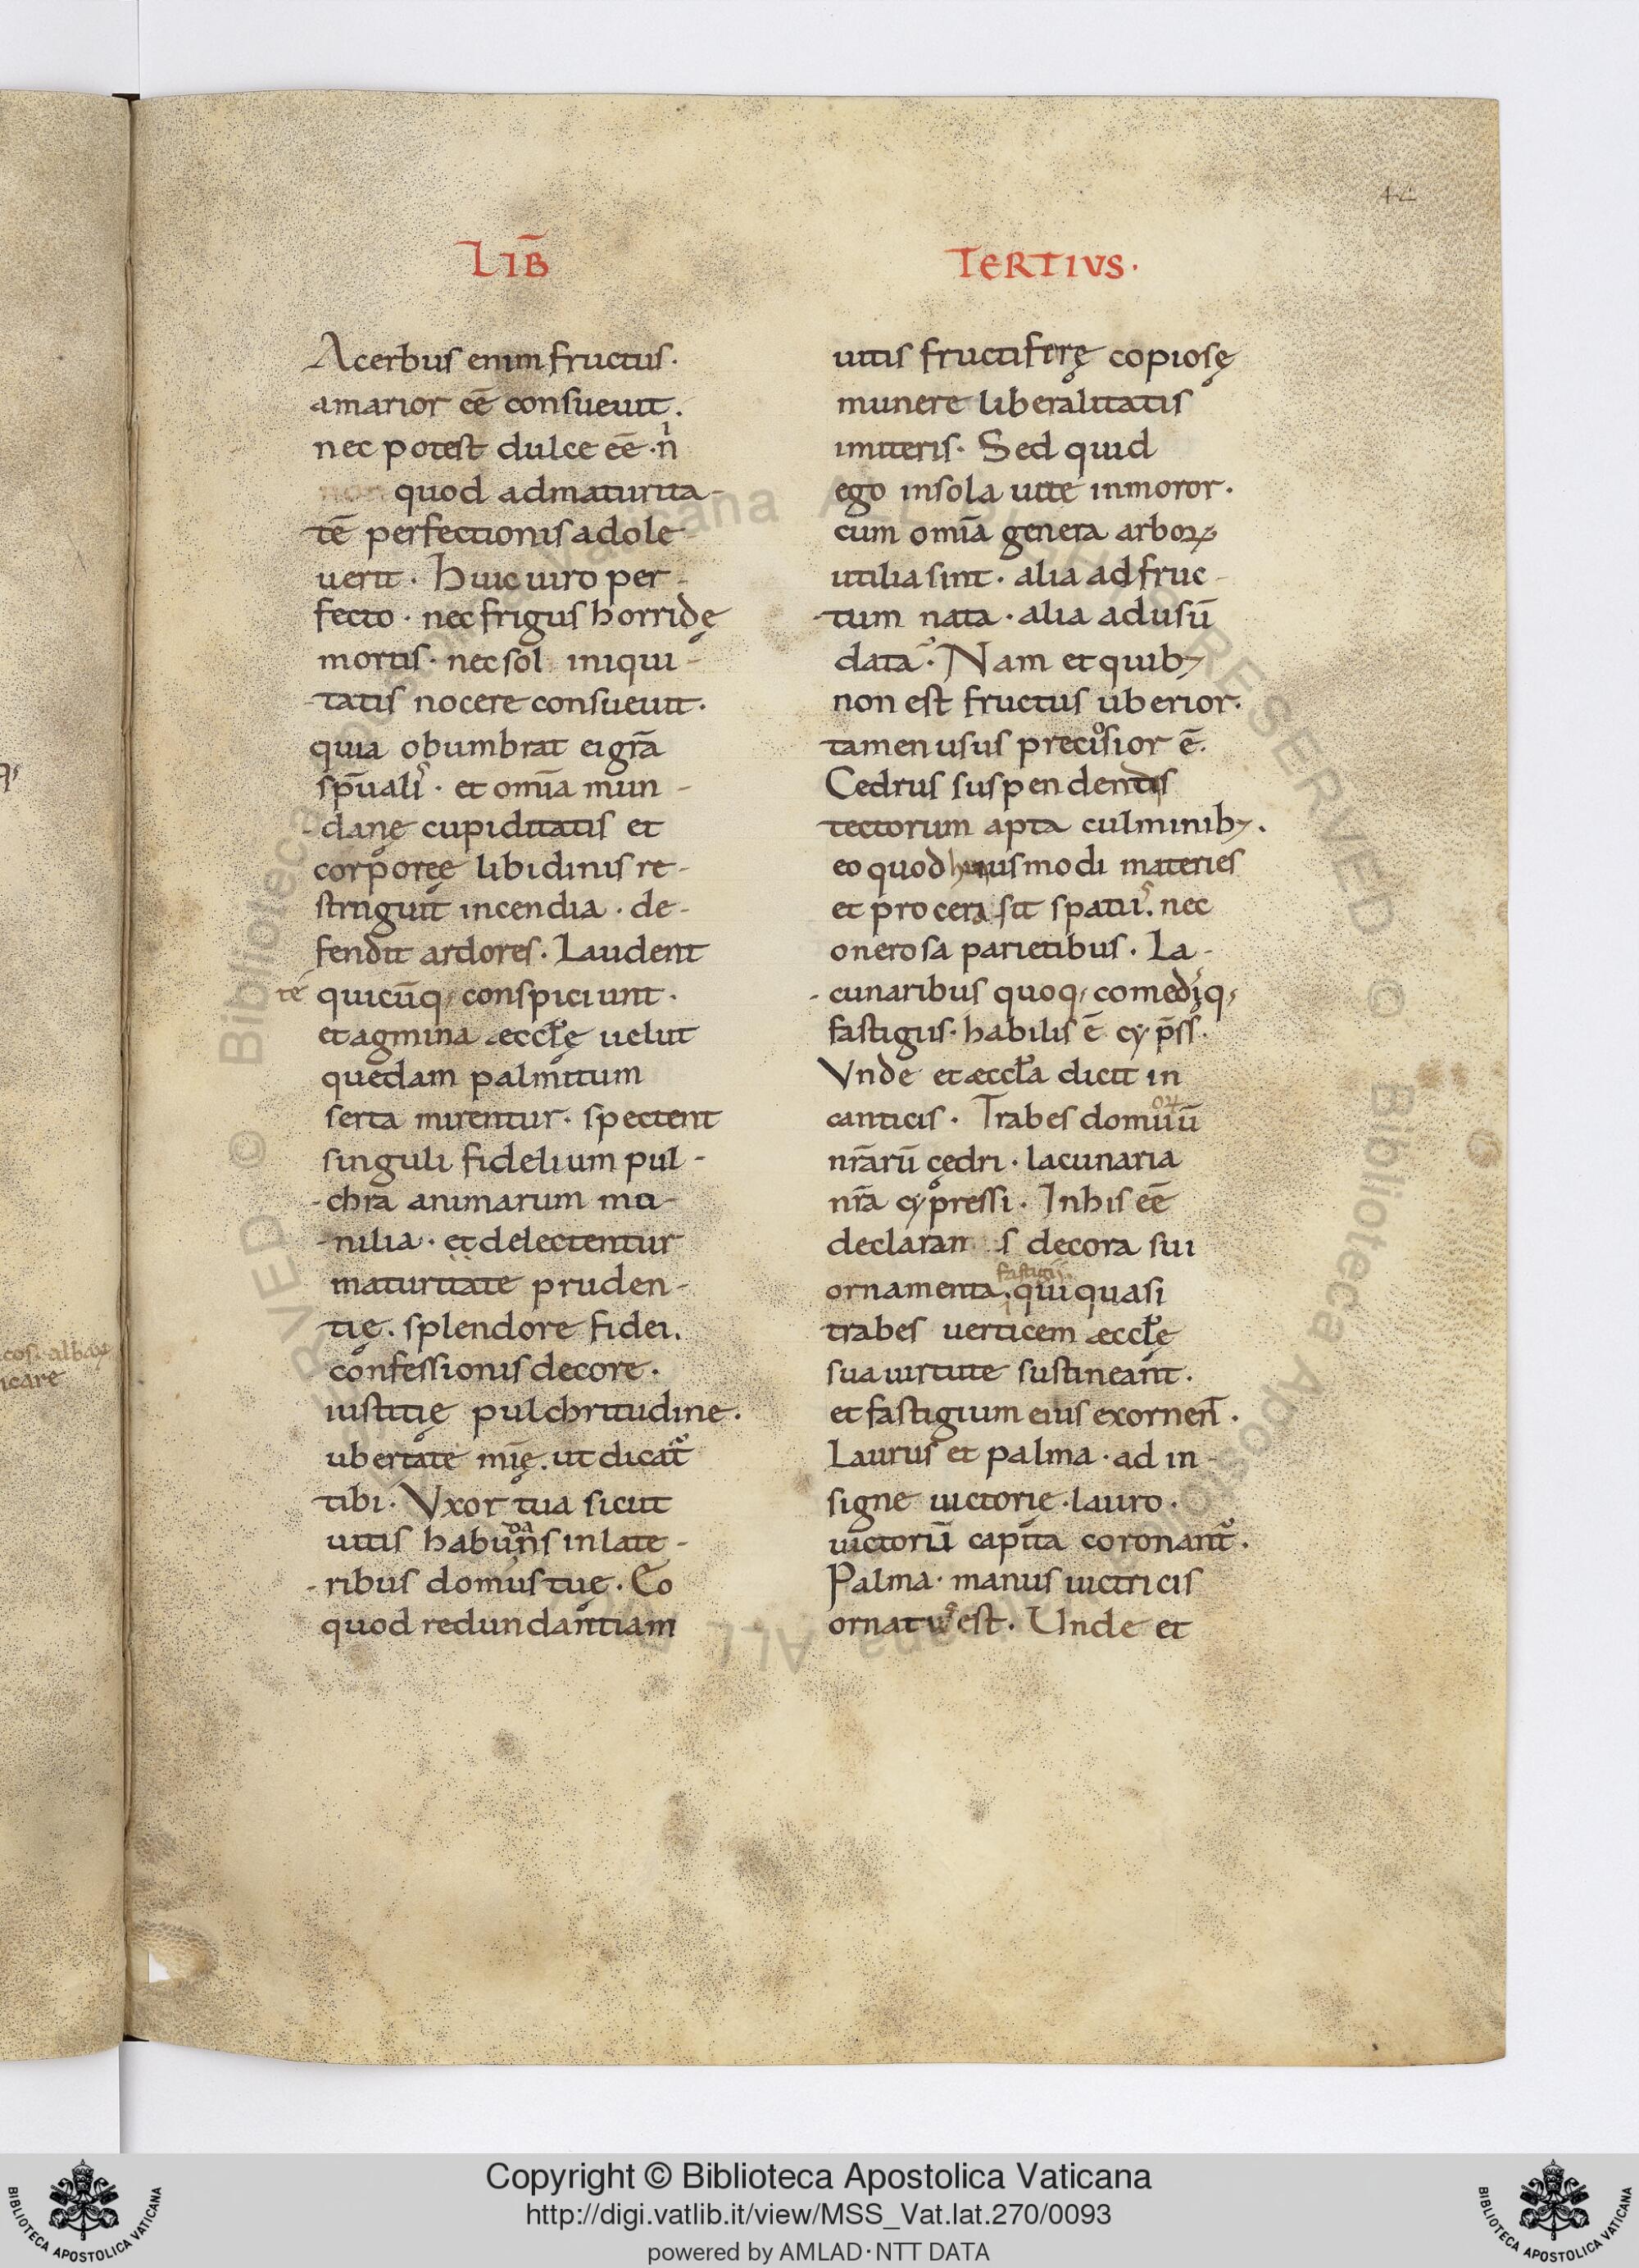 44
LIB̄
TERTIVS.
Acerbus enim fructus·
amarior eē consueuit.
nec potest dulce eē·n̍
non quod admaturita-
tē perfectionis adole-
uerit. Huic uiro per-
fecto· nec frigus horridę
mortis· nec sol iniqui-
tatis nocere consueuit.
quia obumbrat ei gr̄a
sp̄ualis· et om̄ia mun-
danę cupiditatis et
corporeę libidinis re-
stringuit incendia· de-
fendit ardores. Laudent
tē quicūq; conspiciunt·
et agmina æccłę uelut
quedam palmitum
serta mirentur· spectent
singuli fidelium pul-
chra animarum mo-
nilia· et delectentur
maturitate pruden-
tię. splendore fidei.
confessionis decore·
iustitię pulchritudine.
ubertate mīę. ut dicat᷑
tibi. Vxor tua sicut
uitis habundans in late-
ribus domus tuę. Eo
quod redundantiam
uitis fructiferę copiosę
munere liberalitatis
imiteris. Sed quid
ego in sola uite inmoror·
cum om̄ia genera arboꝝ
utilia sint· alia ad fruc-
tum nata· alia ad usū
data. Nam et quib;
non est fructus uberior·
tamen usus preciosior ē.
Cedrus suspendendis
tectorum apta culminib;.
eo quod huiusmodi materies
et procera sit spatiis. nec
onerosa parietibus. La-
cunaribus quoq; comediq;
fastigiis· habilis ē cyp̄ss·
Vnde et æccła dicit in
canticis. Trabes domuū
nr̄arū cedri· lacunaria
nr̄a cypressi. In his eē
declaran s decora sui
fastigii
ornamenta· qui quasi
trabes uerticem æccłę
sua uirtute sustineant.
et fastigium eius exornen̄t.
Laurus et palma· ad in-
signe uictorię· lauro·
uictoriū capita coronant᷑.
Palma· manus uictricis
ornatus est. Unde et
cos· albaꝝ
icare
Copyright © Biblioteca Apostolica Vaticana
http://digi.vatlib.it/view/MSS_Vat.lat.270/0093
powered by AMLAD·NTT DATA
BIBLIOTECA APOSTOLICA VATICANA
BIBLIOTECA APOSTOLICA VATICANA